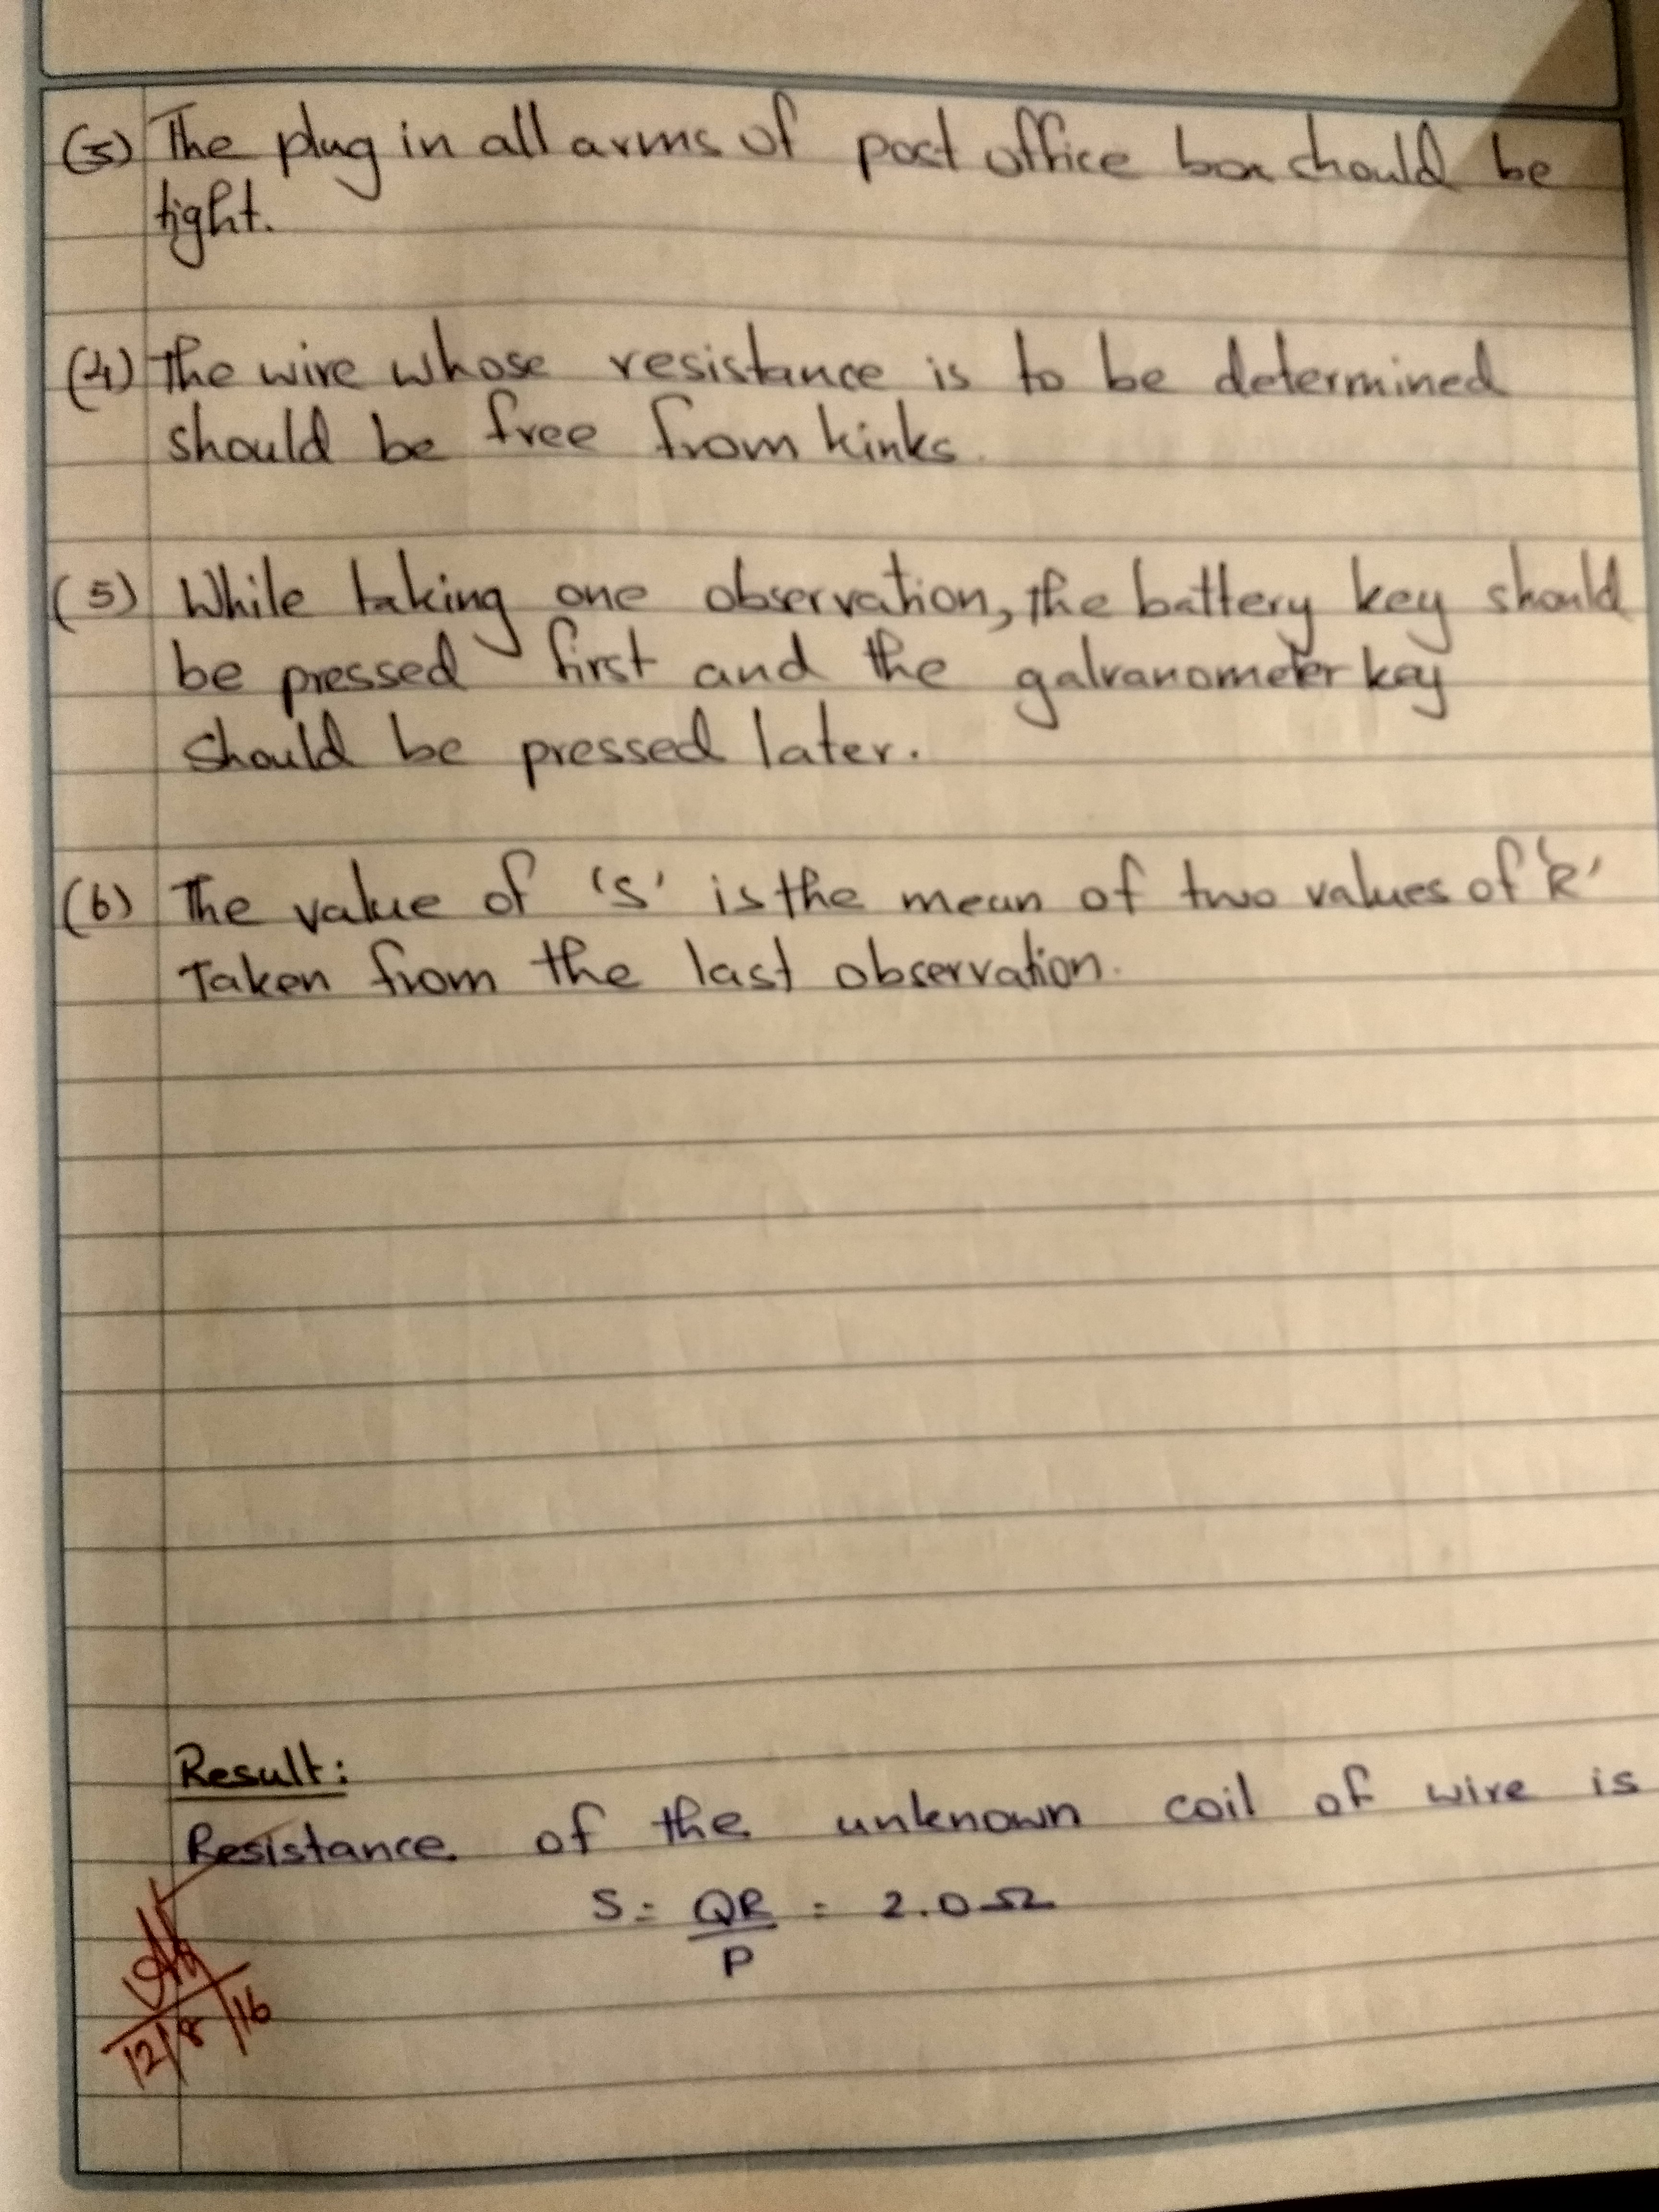 (3) The plug in all arms of post office box should be
tight.
(4) The wire whose resistance is to be determined
should be free from kinks.
(5) While taking one observation, the battery key should
be pressed first and the galvanometer key
should be pressed later.
(6) The value of 'S' is the mean of two values of 'R'
Taken from the last observation.
Result:
Resistance of the unknown coil of wire is
S = QR/P = 2.0Ω
12/8/16